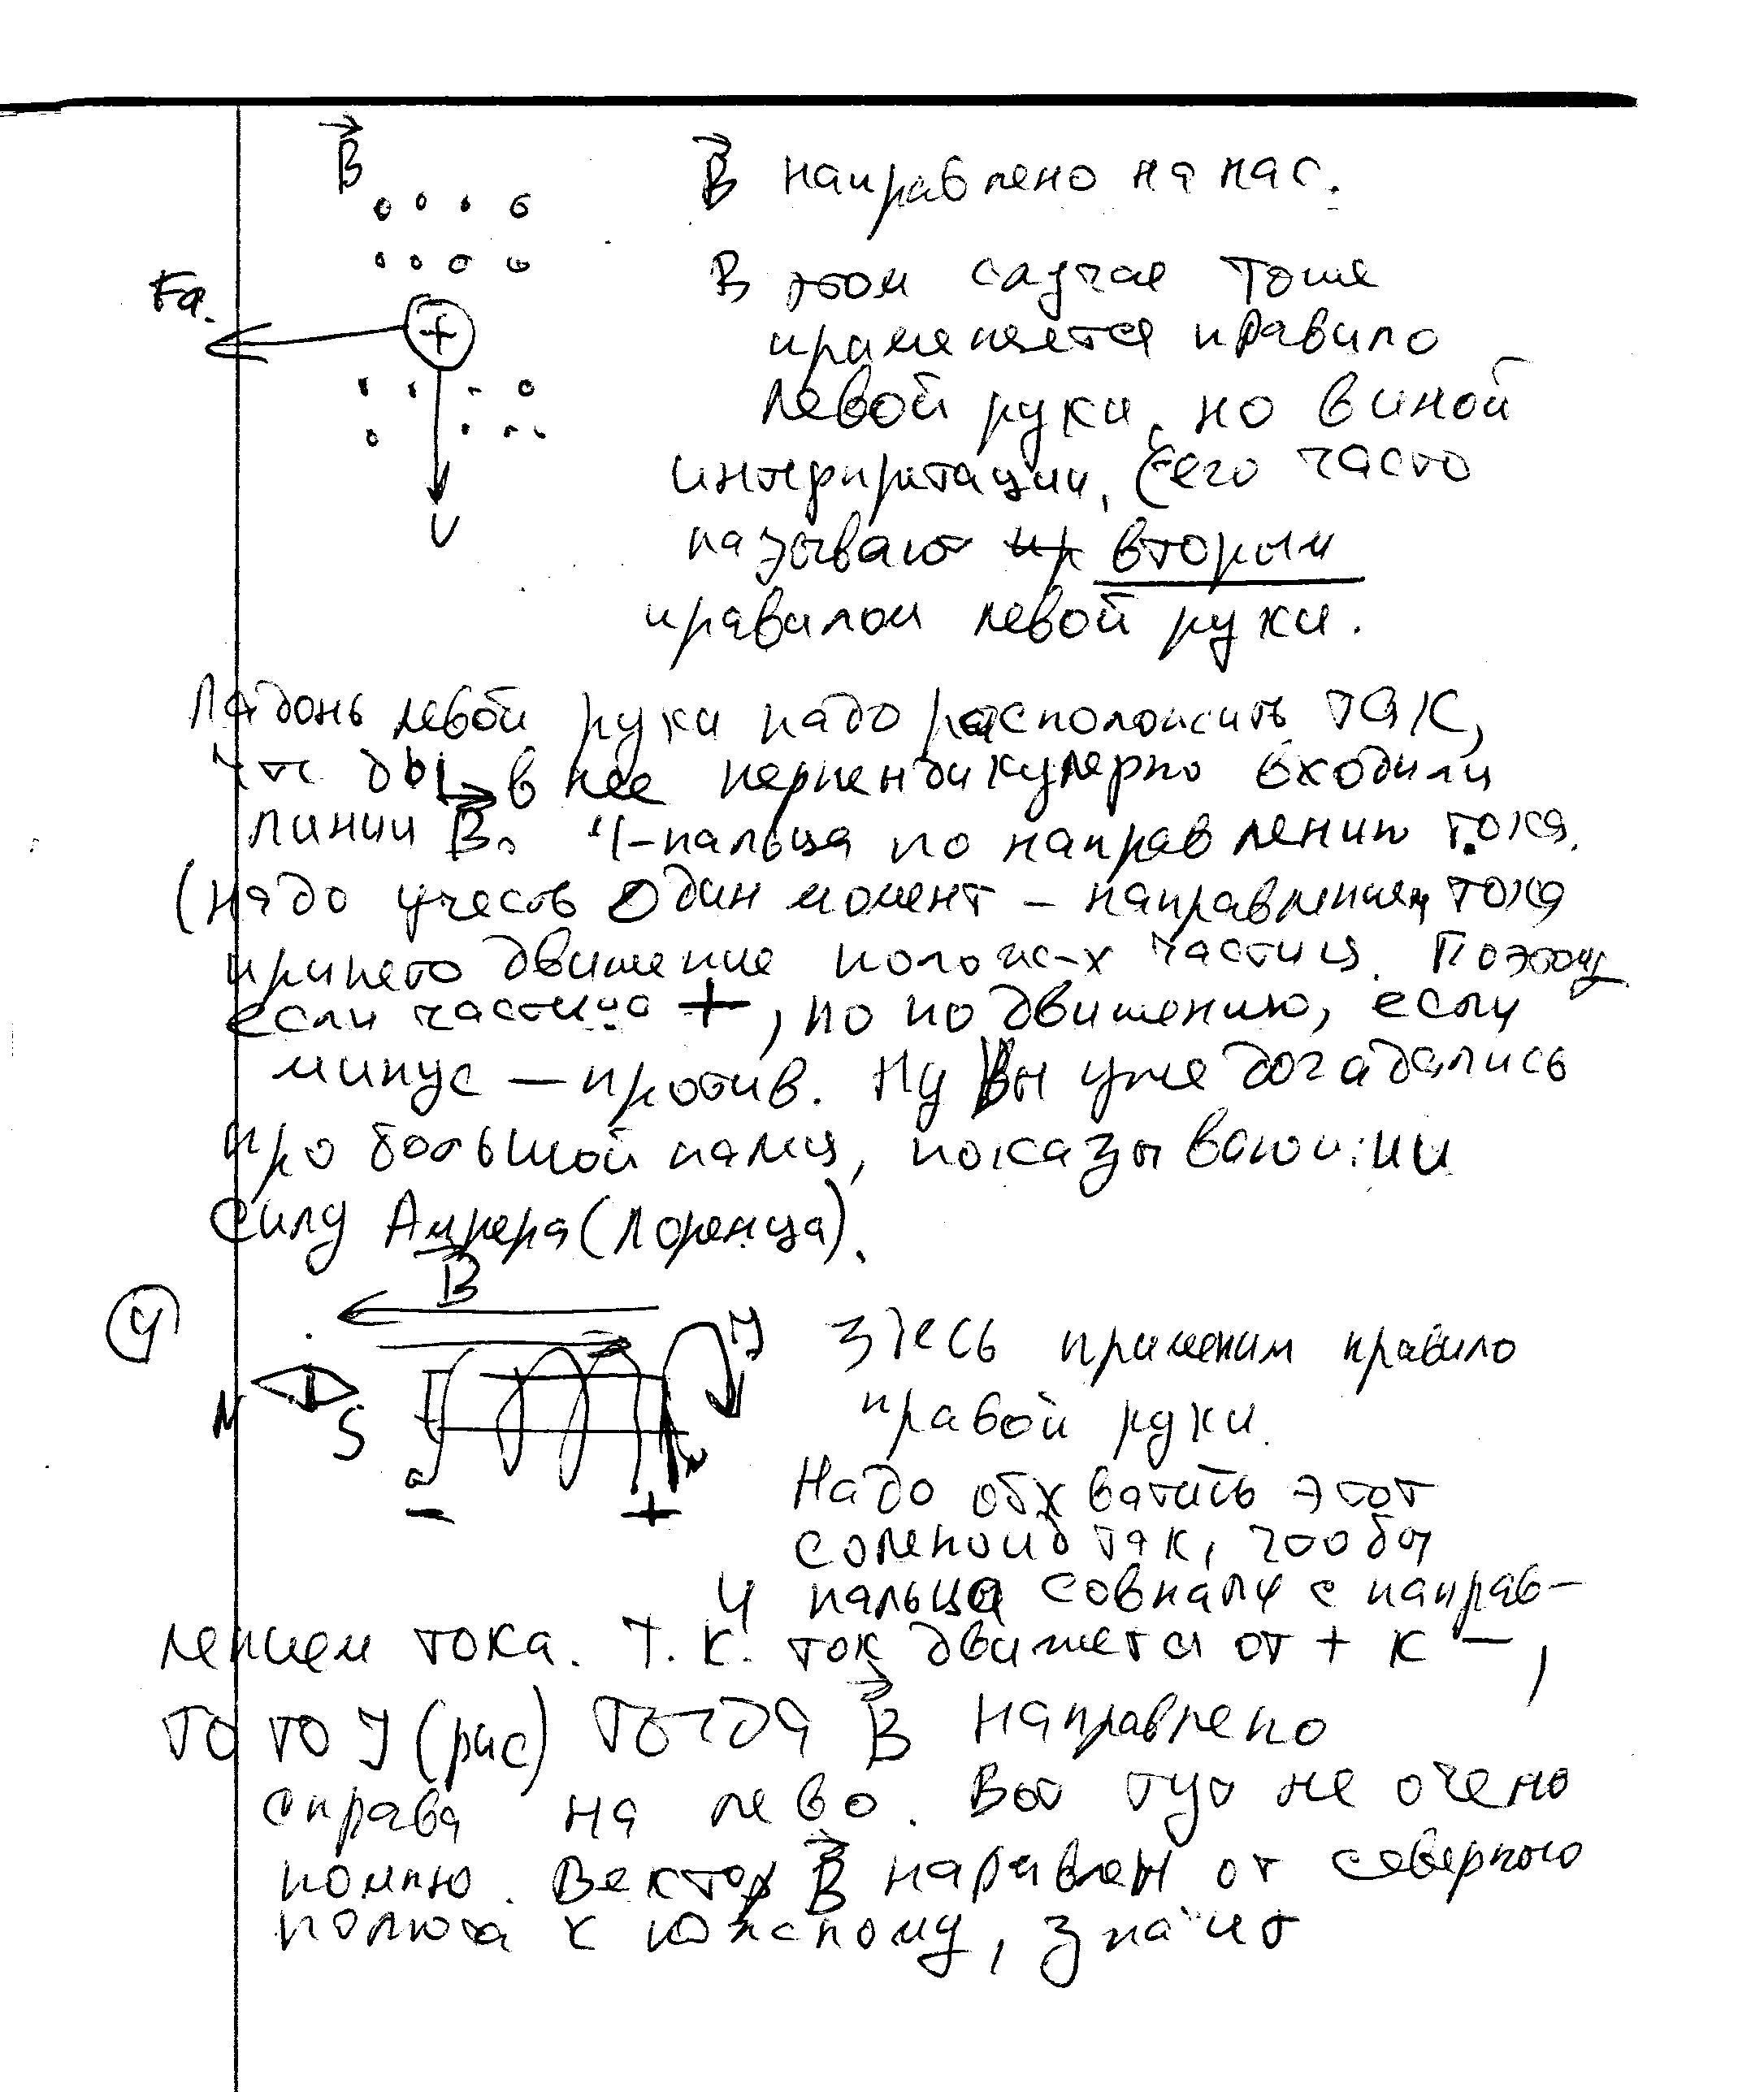 B
B направлено на нас.
Fа.
В этом случае тоже
применяется правило
левой руки, но в иной
интерпритации, (его часто
V
называют пр вторым
правилом левой руки.
Ладонь левой руки надо расположить так,
что бы в нее перпендикулярно входили
линии B. 4-пальца по направлению тока.
(надо учесть один момент – направлением тока
принято движение полож-х частиц. Поэтому
если частица +, то по движению, если
минус – против. Ну Вы уже догадались
про большой палец, показывающий
силу Ампера (Лоренца).
B
4
I
Здесь применим правило
N
S
правой руки.
Надо обхватить этот
– +
соленоид так, чтобы
4 пальца совпали с направ-
лением тока. Т.к. ток движется от + к –,
то то I (рис) тогда B направлено
справа на лево. Вот тут не очень
помню. Вектор B направлен от северного
полюса к южному, значит